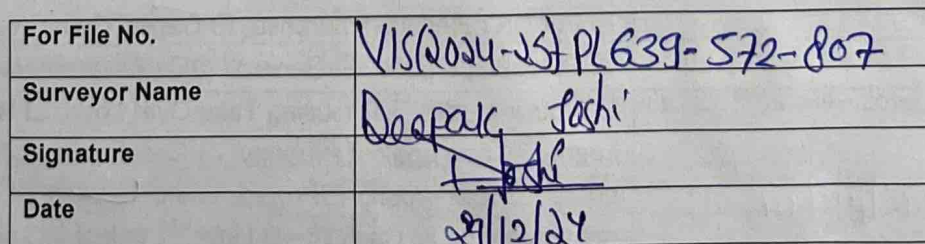 For File No. VIS(2024-25)-PL639-572-807
Surveyor Name Deepak Joshi
Signature Joshi
Date 29/12/24